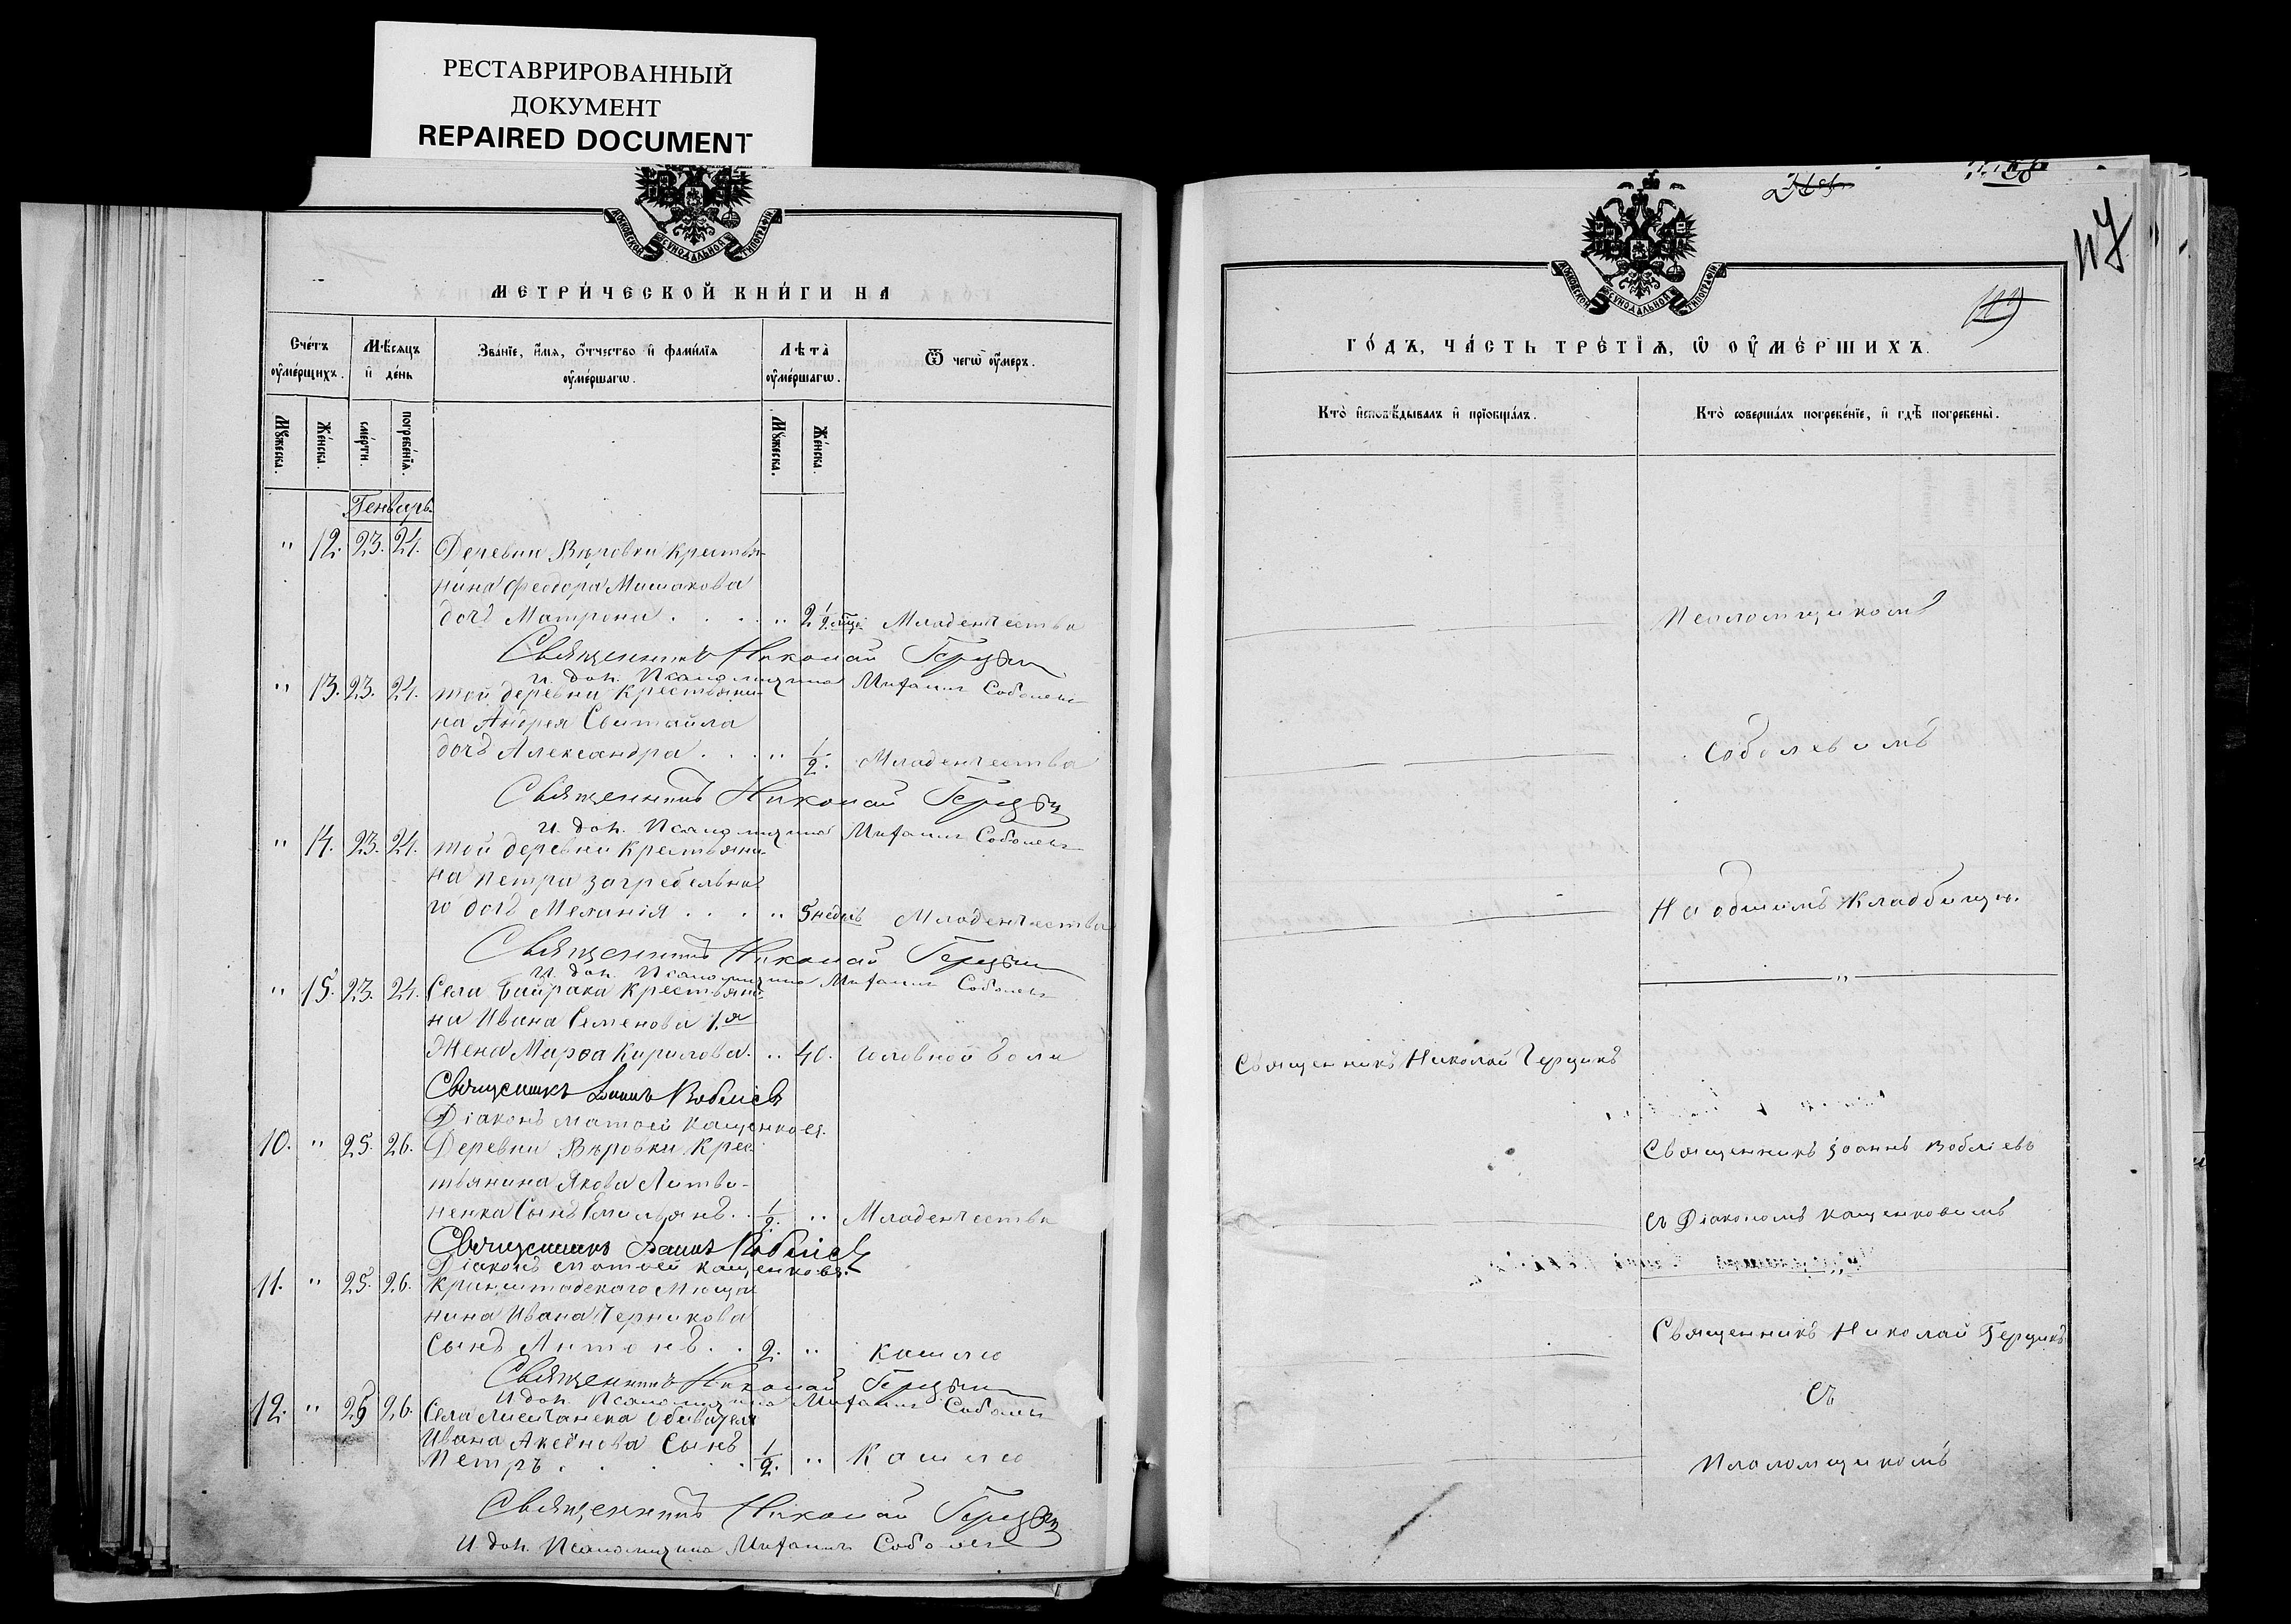 РЕСТАВРИРОВАННЫЙ
ДОКУМЕНТ
REPAIRED DOCUMENT
МОСКОВСКОЙ СѴНОДАЛЬНОЙ ТИПОГРАФІИ
МЕТРИ́ЧЕСКОЙ КНИ́ГИ НА
Сче́тъ ᲂу҆ме́рщихъ.
Мѣ́сяцъ и҆ де́нь
Зва́нїе, и҆́мя, ѻ҆́тчество и҆ фами́лїя ᲂу҆ме́ршагѡ.
Лѣта̀ ᲂу҆ме́ршагѡ.
Ѿ чегѡ̀ ᲂу҆́меръ.
Мꙋ́жеска.
Же́нска.
сме́рти.
погребе́нїя.
Мꙋ́жеска.
Же́нска.
Генварь
" 12. 23. 24. Деревни Вѣровки крестья-
нина Феодора
дочь Матрона . . . . " 2 1/2 Младенчества
Священникъ Николай
И. дол. Псаломщика Михаилъ Соболевъ
" 13. 23. 24. той деревни крестьяни-
на Андрея
дочь Александра . . . " 1/2. Младенчества
Священникъ Николай
И. дол. Псаломщика Михаилъ Соболевъ
" 14. 23. 24. той деревни крестьяни-
на Петра Загребельна
го дочь Меланія . . . " 5 недѣль Младенчества
Священникъ Николай
И. дол. Псаломщика Михаилъ Соболевъ
" 15. 23. 24. Села Байрака крестьяни-
на Ивана Семенова 1.я
жена Марѳа Кирилова. " 40. головной боли
Священникъ Іоаннъ Воблієвъ
Діаконъ Матѳей Кащенковъ.
10. " 25. 26. Деревни Вѣровки крес-
тьянина Якова Литви-
ненка сынъ Емильянъ. . 1/2. " Младенчества
Священникъ Іоаннъ Воблієвъ
Діаконъ Матѳей Кащенковъ.
11. " 25. 26. Кранштадскаго Мѣща
нина Ивана Черникова
сынъ Антонъ. . 2. " Кашлю
Священникъ Николай
И. дол. Псаломщика Михаилъ Соболевъ
12. " 25 26. Села Лисичанска обивателя
Ивана сынъ
Петръ . . . . 1/2. " Кашлю
Священникъ Николай
И. дол. Псаломщика Михаилъ Соболевъ
117
МОСКОВСКОЙ СѴНОДАЛЬНОЙ ТИПОГРАФІИ
ГО́ДЪ, ЧА́СТЬ ТРЕ́ТЇЯ, Ѡ҆ ОУ҆МЕ́РШИХЪ.
Кто̀ и҆сповѣ́дывалъ и҆ прїобща́лъ.
Кто̀ соверша́лъ погребе́нїе, и҆ гдѣ̀ погребены̀.
Псаломщикомъ
Соболевимъ
На общимъ кладбищѣ.
"
Священникъ Николай Герцикъ
Священникъ Іоаннъ Воблієвъ
съ Діакономъ Кащенковимъ
Священникъ Николай Герцикъ
съ
Псаломщикомъ